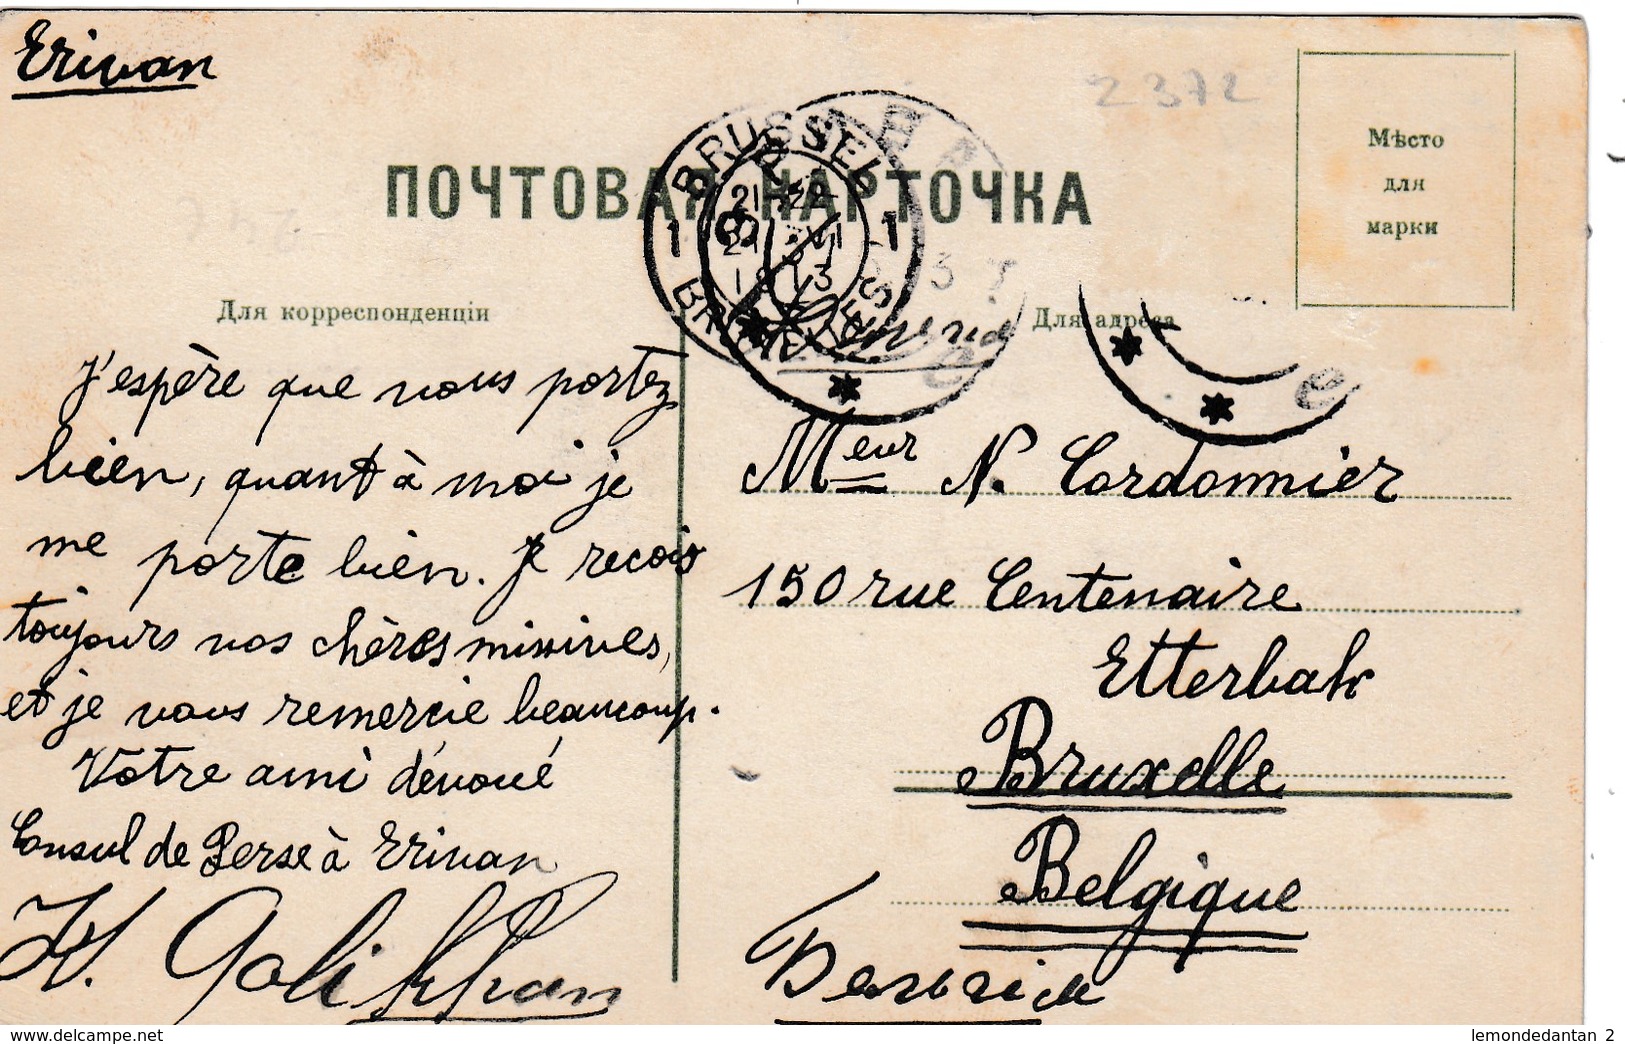 Erivan
2372
ПОЧТОВАЯ КАРТОЧКА
Мѣсто
для
марки
BRUSSEL
21-22
1 21 VI 1
1913
BRUXELLES
Для корреспонденціи
Для адреса
J'espère que vous portez
bien, quant à moi je
me porte bien. Je recois
toujours vos chères missives,
et je vous remercie beaucoup.
Votre ami dévoué
Consul de Perse à Erivan
Meur N. Cordonnier
150 rue Centenaire
Etterbak
Bruxelle
Belgique
Бельгія
www.delcampe.net
lemondedantan 2